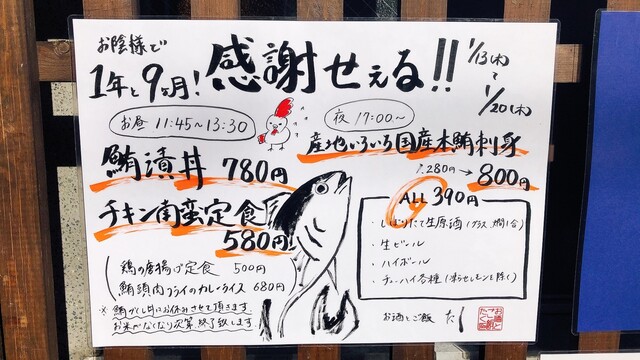 お陰様で
1年と9ヶ月!感謝せえる!!
1/13(木)
〜
1/20(木)
お昼 11:45~13:30
夜 17:00~
鮪漬丼 780円
チキン南蛮定食 580円
鶏の唐揚げ定食 500円
鮪頭肉フライのカレーライス 680円
産地いろいろ国産本鮪刺身
1,280円→800円
ALL 390円
・しぼりたて生原酒(グラス、燗1合)
・生ビール
・ハイボール
・チューハイ各種(凍らせレモンを除く)
お米がなくなり次第終了致します
お酒とご飯